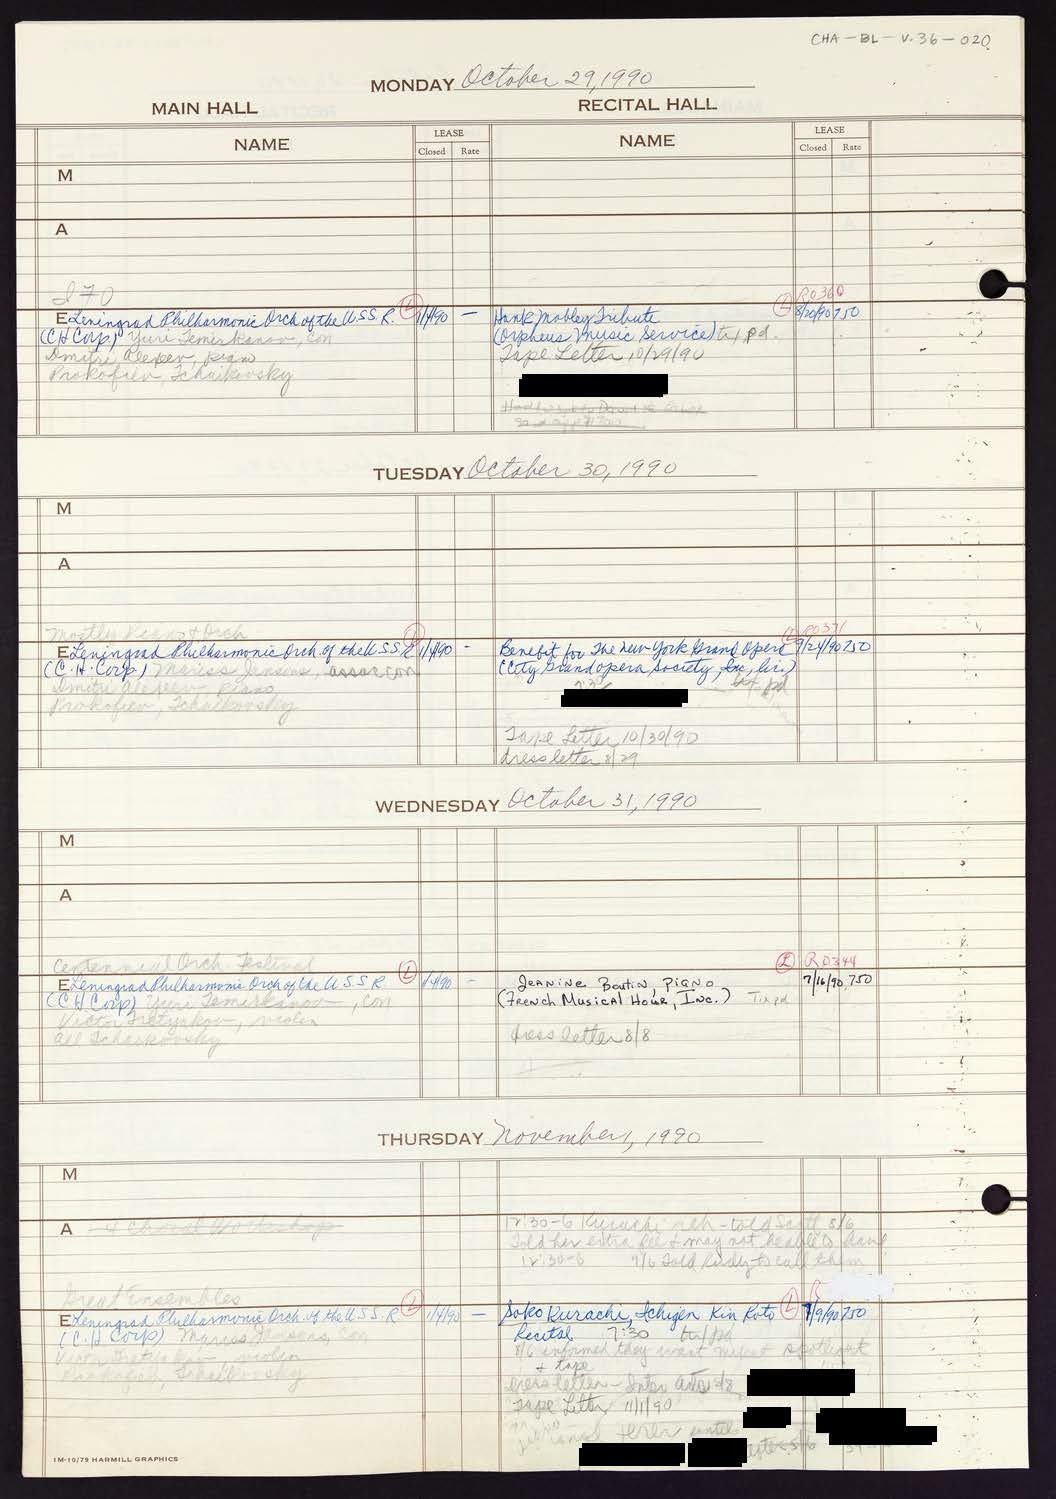 CHA-BL-V.36-020
MONDAY October 29, 1990
MAIN HALL
RECITAL HALL
NAME
LEASE
Closed Rate
NAME
LEASE
Closed Rate
M
A
I 70
E Leningrad Philharmonic Orch of the U.S.S.R. L 1/4/90 —
(CH Corp) Yuri Temirkanov, con
Dmitri Alexeev, piano
Prokofiev, Tchaikovsky
L R0360
Hank Mobley Tribute 8/20/90 750
(Orpheus Music Service) tx pd.
Tape Letter 10/29/90
TUESDAY October 30, 1990
M
A
Mostly Piano & Orch
E Leningrad Philharmonic Orch of the U.S.S.R L 1/4/90 -
(C.H. Corp) Mariss Jansons, con
Dmitri Alexeev piano
Prokofiev, Tchaikovsky
L R0371
Benefit for The New York Grand Opera 9/24/90 750
(City Grand Opera Society, Inc., lic.)
tx pd
Tape Letter 10/30/90
dress letter 8/29
WEDNESDAY October 31, 1990
M
A
Centennial Orch. Festival
E Leningrad Philharmonic Orch of the U.S.S.R L 1/4/90 -
(CH Corp) Yuri Temirkanov, con
Victor Tretyakov, violin
All Tchaikovsky
L R0344
Jeanine Boutin, Piano 7/16/90 750
(French Musical Hour, Inc.) Tix pd
dress letter 8/8
THURSDAY November 1, 1990
M
A 4 Choral Workshop
12:30-6 Kurachi reh - told Scott 8/6
Told her extra fee & may not be able to have
12:30-6 9/6 Told Rudy to call them
Great Ensembles
E Leningrad Philharmonic Orch. of the U.S.S.R L 1/4/90 —
(C.H Corp) Mariss Jansons, Con
Victor Tretyakov violin
Prokofiev, Tchaikovsky
Soko Kurachi, Ichigen Kin Koto L 7/9/90 750
Recital 7:30 tx pd
8/6 informed they want spotlight
+ tape
dress letter
Tape Letter 11/1/90
until
1M-10/79 HARMILL GRAPHICS